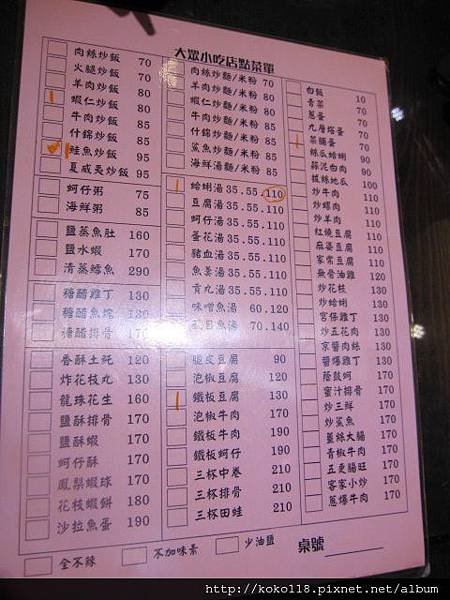 大眾小吃店點菜單
肉絲炒飯 70
火腿炒飯 70
羊肉炒飯 80
蝦仁炒飯 80
牛肉炒飯 85
什錦炒飯 85
鮭魚炒飯 95
夏威夷炒飯 95
蚵仔粥 75
海鮮粥 85
鹽蒸魚肚 160
鹽水蝦 170
清蒸鱈魚 290
糖醋雞丁 130
糖醋魚塊 130
糖醋排骨 170
香酥土魠 120
炸花枝丸 130
龍珠花生 160
鹽酥排骨 170
鹽酥蝦 170
蚵仔酥 170
鳳梨蝦球 170
花枝蝦餅 180
沙拉魚蛋 190
肉絲炒麵/米粉 70
羊肉炒麵/米粉 80
蝦仁炒麵/米粉 80
牛肉炒麵/米粉 85
什錦炒麵/米粉 85
鯊魚炒麵/米粉 85
海鮮湯麵/米粉 85
蛤蜊湯 35.55.110
豆腐湯 35.55.110
蚵仔湯 35.55.110
蛋花湯 35.55.110
豬血湯 35.55.110
魚羹湯 35.55.110
貢丸湯 35.55.110
味噌魚湯 60.120
虱目魚湯 70.140
脆皮豆腐 90
泡椒豆腐 120
鐵板豆腐 130
泡椒牛肉 170
鐵板牛肉 190
鐵板蚵仔 190
三杯中卷 210
三杯排骨 210
三杯田蛙 210
白飯 10
青菜 70
蔥蛋 70
九層塔蛋 70
菜脯蛋 70
絲瓜蛤蜊 90
蒜泥白肉 90
拔絲地瓜 110
炒牛肉 110
炒螺肉 110
炒羊肉 110
紅燒豆腐 110
麻婆豆腐 110
家常豆腐 110
無骨油雞 120
炒花枝 130
炒蛤蜊 130
宮保雞丁 130
炒五花肉 130
京醬肉絲 130
醬爆雞丁 130
蔭鼓蚵 170
蜜汁排骨 170
炒三鮮 170
炒鯊魚 170
薑絲大腸 170
青椒牛肉 170
五更腸旺 170
客家小炒 170
蔥爆牛肉 170
全不辣
不加味素
少油鹽
桌號
http://koko118.pixnet.net/album